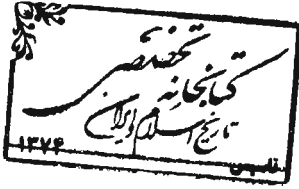 کتابخانه تخصصی
تاریخ اسلام و ایران
قم ۱۳۷۴